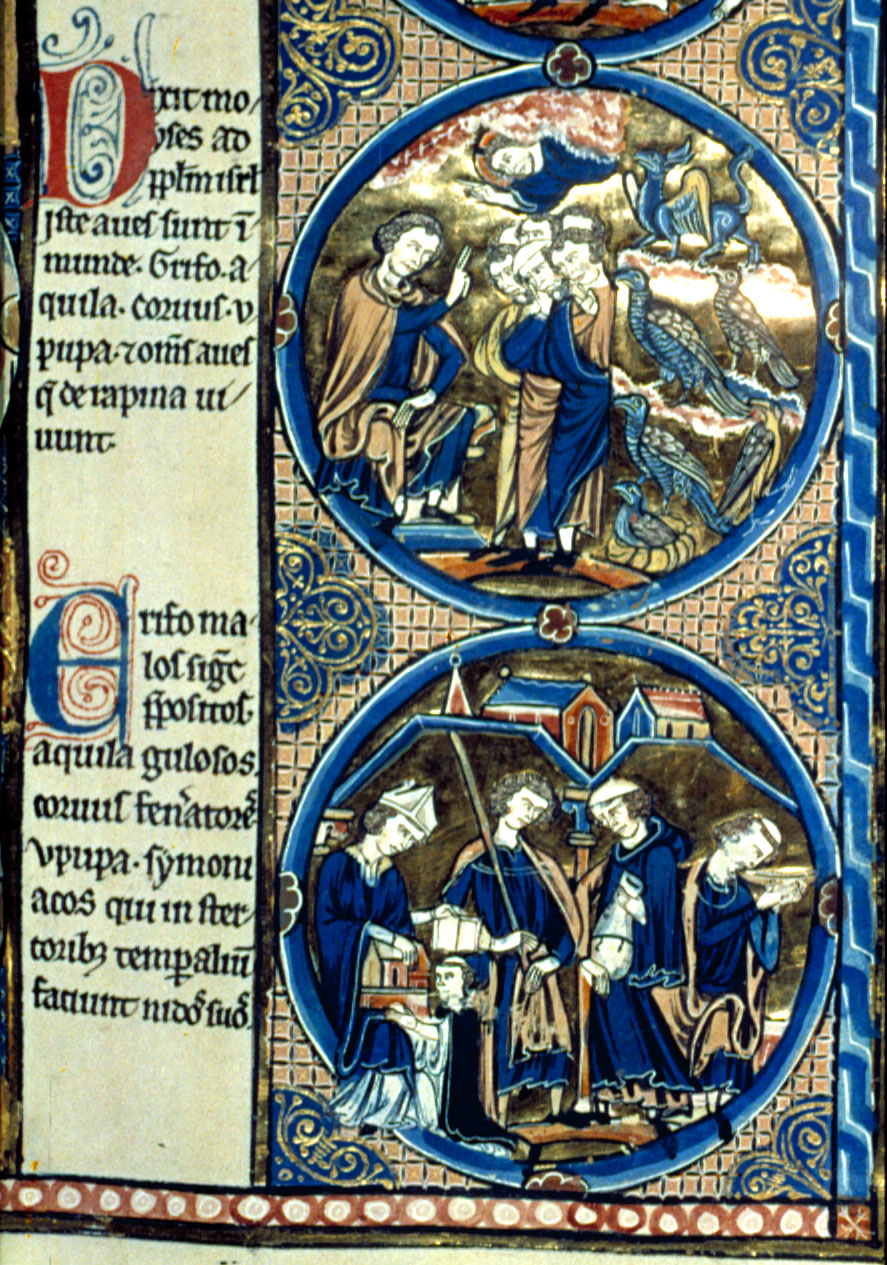 Dixit mo/
yses ad
pplm isrl
iste aues sunt ī
munde. Grifo. a/
quila. coruus. v
pupa. ⁊ om̄s aues
q̄ de rapina ui/
uunt.
Grifo ma/
los siḡt
p̄positos.
aquila gulosos
coruus fen̄atores
vpupa. symoni
acos qui in ster/
coribꝫ temp̄aliū
faciunt nidos suos